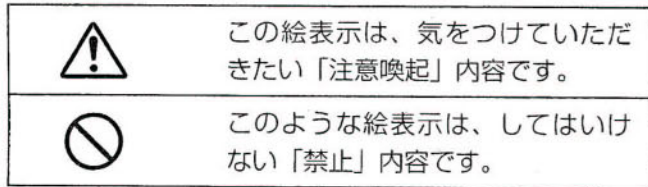 この絵表示は、気をつけていただ
きたい「注意喚起」内容です。
このような絵表示は、してはいけ
ない「禁止」内容です。